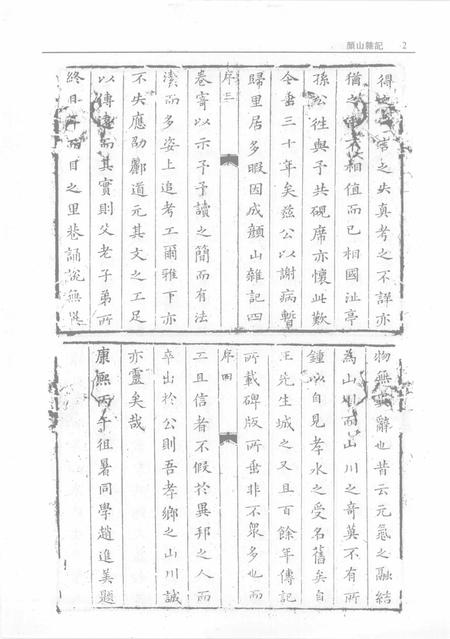 顏山雜記 2
得之 常之失真考之不詳亦
猶之 不相值而已相國沚亭
孫公徃與予共硯席亦懷此歎
今垂三十年矣茲公以謝病暫
歸里居多暇因成顏山雜記四
序三
卷寄以示予予讀之簡而有法
潔而多姿上追考工爾雅下亦
不失應劭酈道元其文之工足
以傳遠而其實則父老子弟所
終日 而目之里巷誦說無
物無 辭也昔云元氣之融結
為山川而山川之奇莫不有所
鍾以自見孝水之受名舊矣自
王先生城之又且百餘年傳記
所載碑版所垂非不眾多也而
序四
工且信者不假於異邦之人而
卒出於公則吾孝鄉之山川誠
亦靈矣哉
康熙丙午徂暑同學趙進美題